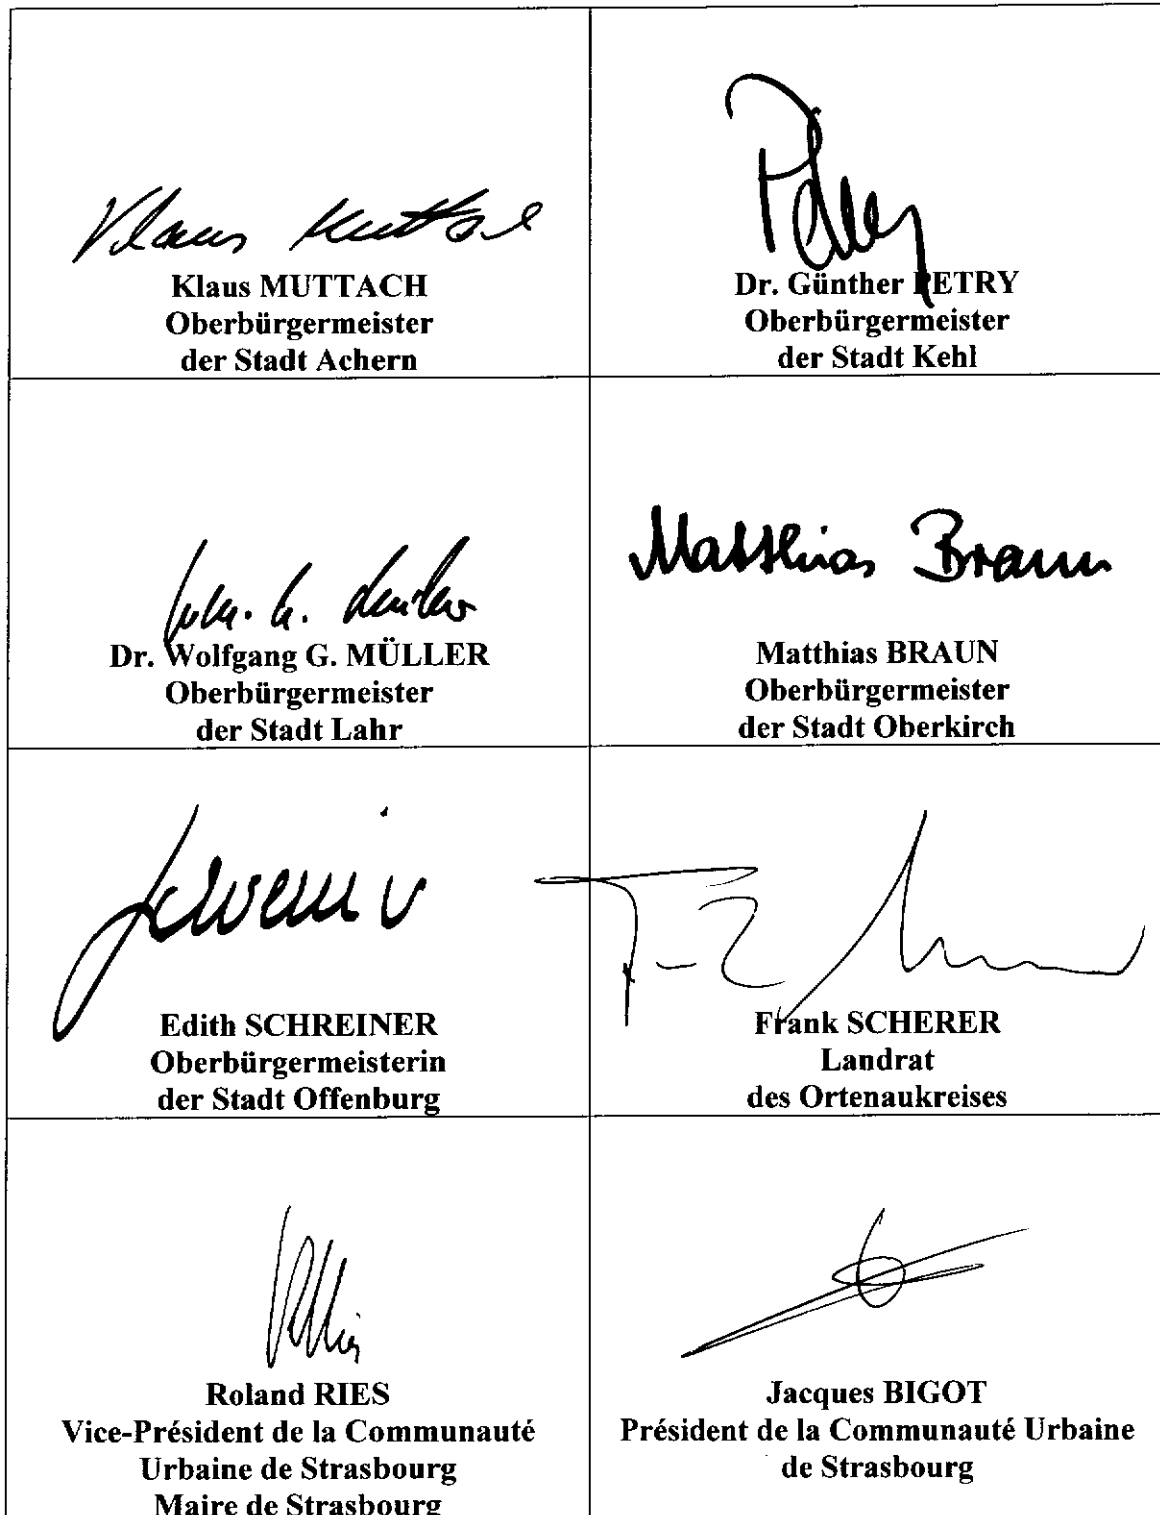 Klaus Muttach
Klaus MUTTACH
Oberbürgermeister
der Stadt Achern
Petry
Dr. Günther PETRY
Oberbürgermeister
der Stadt Kehl
Dr. Wolfgang G. MÜLLER
Oberbürgermeister
der Stadt Lahr
Matthias Braun
Matthias BRAUN
Oberbürgermeister
der Stadt Oberkirch
Edith SCHREINER
Oberbürgermeisterin
der Stadt Offenburg
Frank SCHERER
Landrat
des Ortenaukreises
Roland RIES
Vice-Président de la Communauté
Urbaine de Strasbourg
Maire de Strasbourg
Jacques BIGOT
Président de la Communauté Urbaine
de Strasbourg